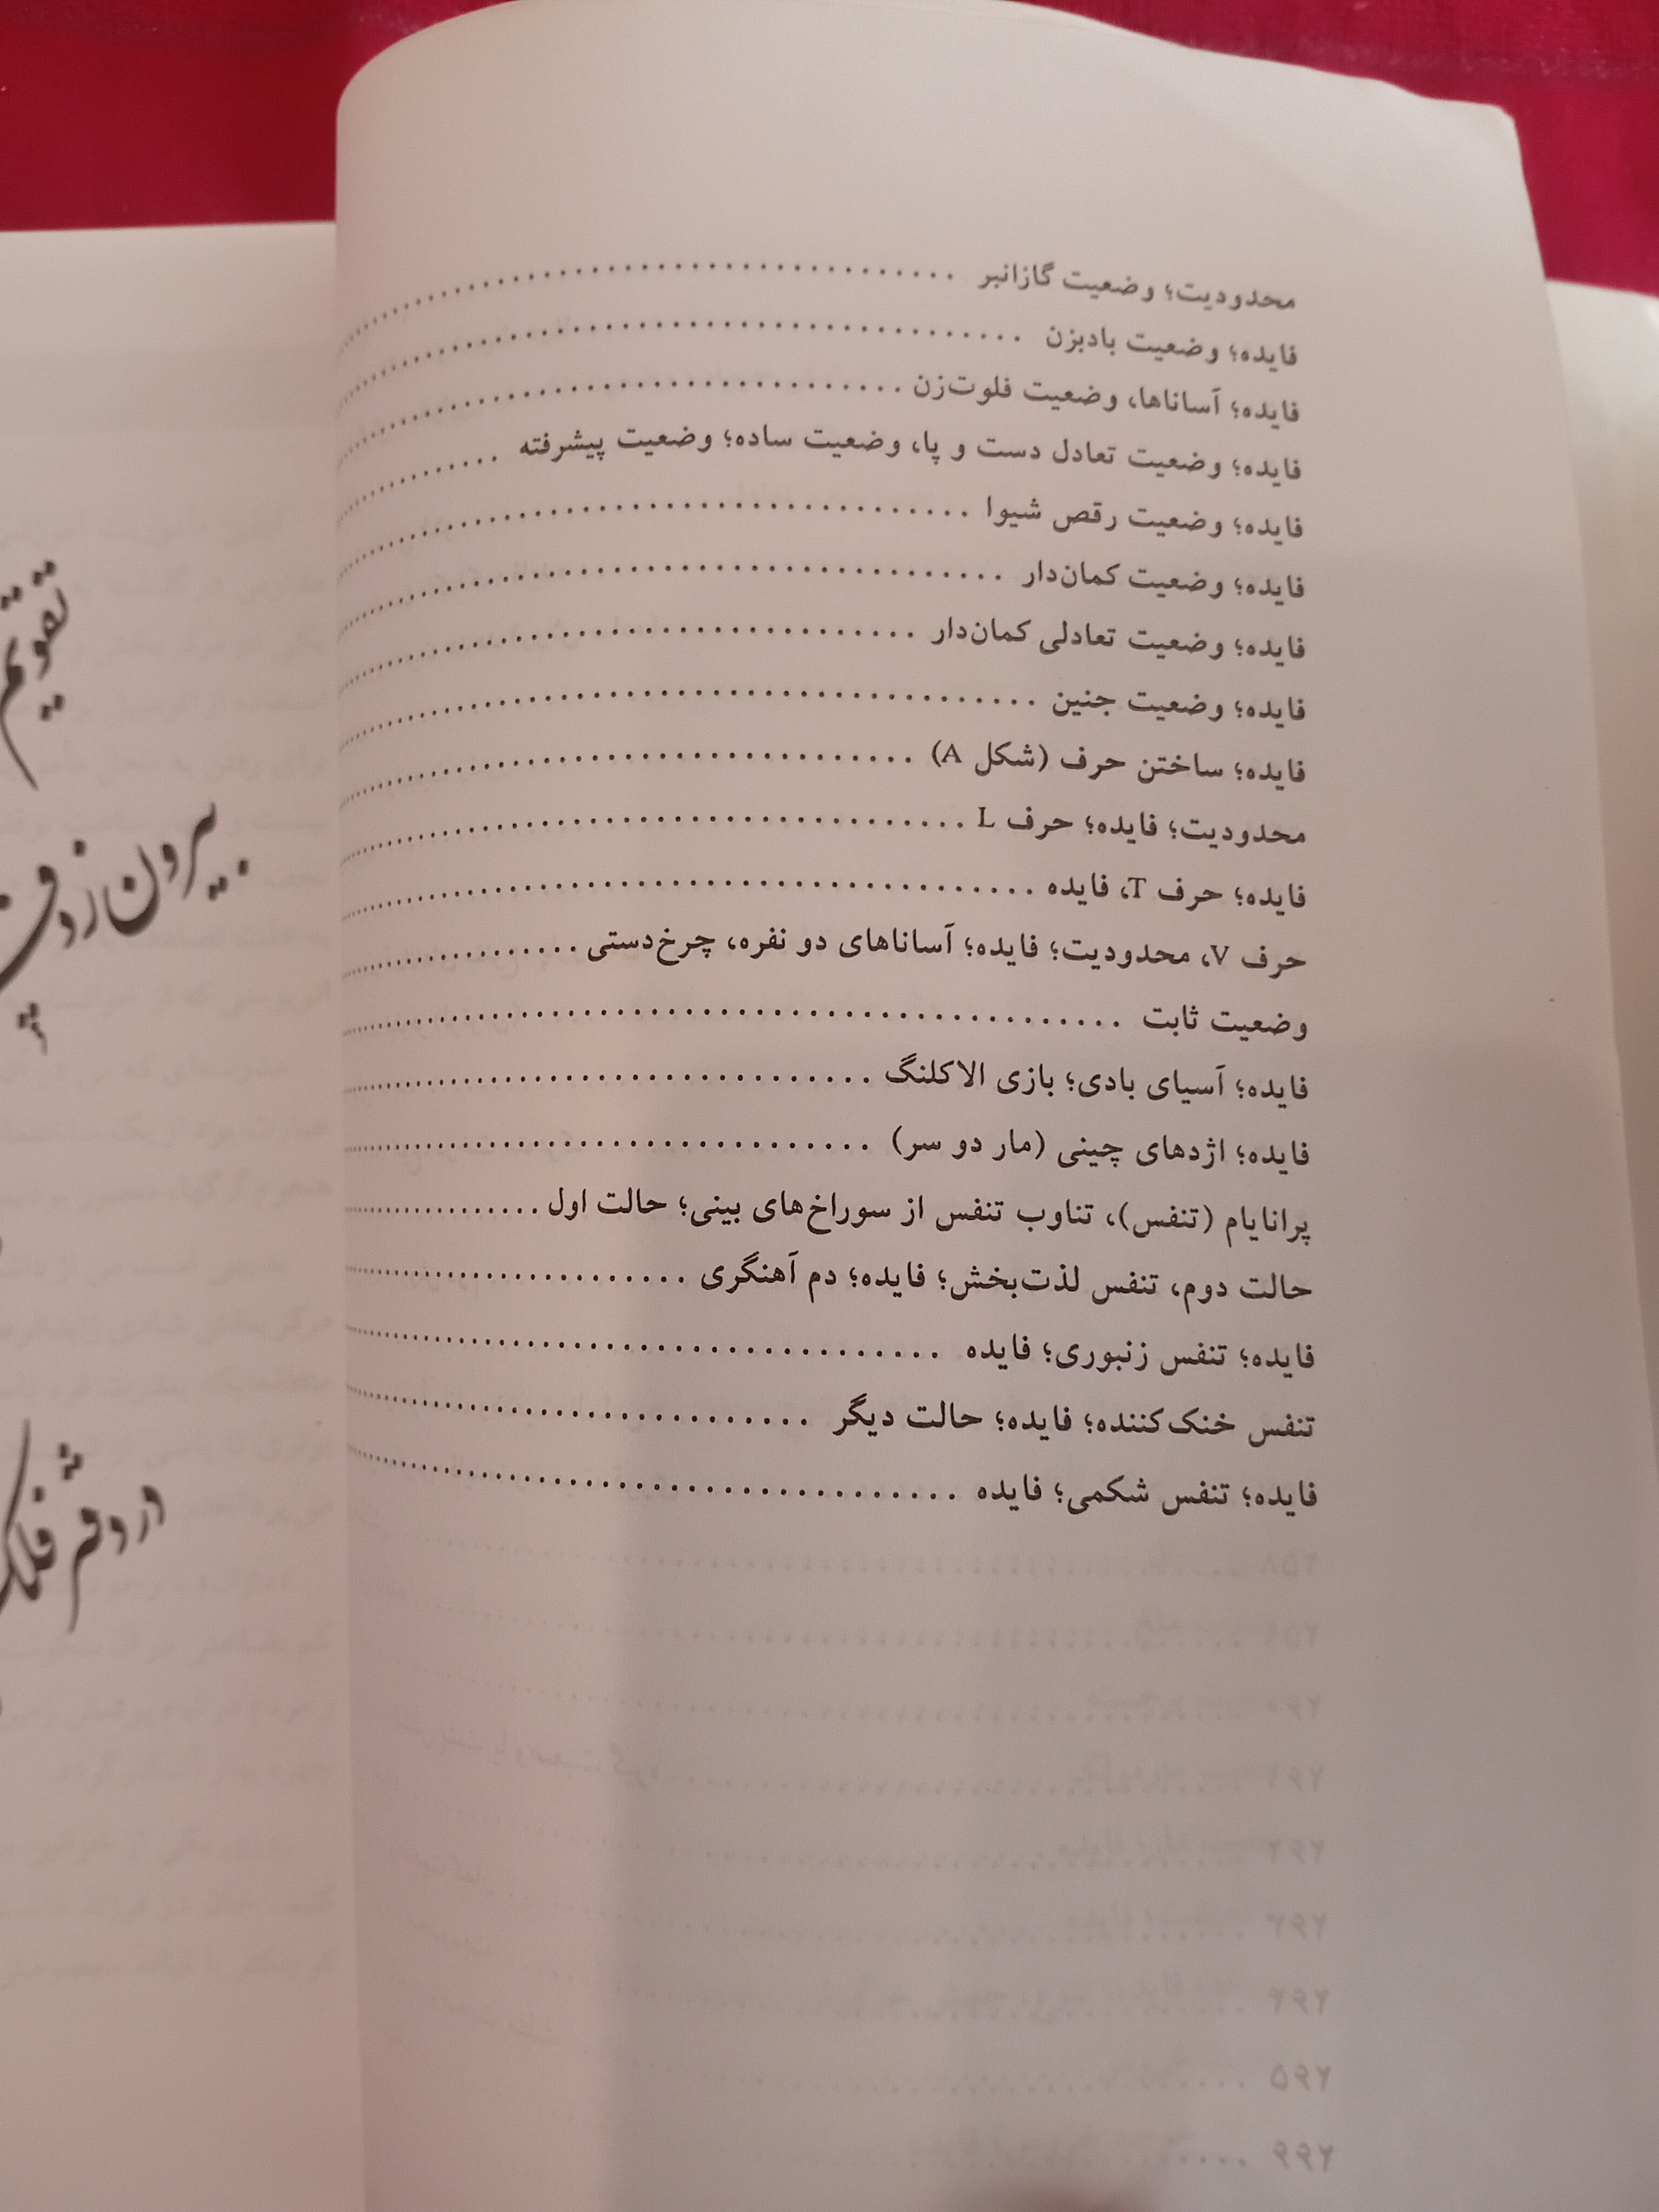 محدودیت؛ وضعیت گازانبر
فایده؛ وضعیت بادبزن
فایده؛ آساناها، وضعیت فلوت‌زن
فایده؛ وضعیت تعادل دست و پا، وضعیت ساده؛ وضعیت پیشرفته
فایده؛ وضعیت رقص شیوا
فایده؛ وضعیت کمان‌دار
فایده؛ وضعیت تعادلی کمان‌دار
فایده؛ وضعیت جنین
فایده؛ ساختن حرف (شکل A)
محدودیت؛ فایده؛ حرف L
فایده؛ حرف T، فایده
حرف V، محدودیت؛ فایده؛ آساناهای دو نفره، چرخ‌دستی
وضعیت ثابت
فایده؛ آسیای بادی؛ بازی الاکلنگ
فایده؛ اژدهای چینی (مار دو سر)
پرانایام (تنفس)، تناوب تنفس از سوراخ‌های بینی؛ حالت اول
حالت دوم، تنفس لذت‌بخش؛ فایده؛ دم آهنگری
فایده؛ تنفس زنبوری؛ فایده
تنفس خنک‌کننده؛ فایده؛ حالت دیگر
فایده؛ تنفس شکمی؛ فایده
تقویم
بیرون ز
در دفتر فلک